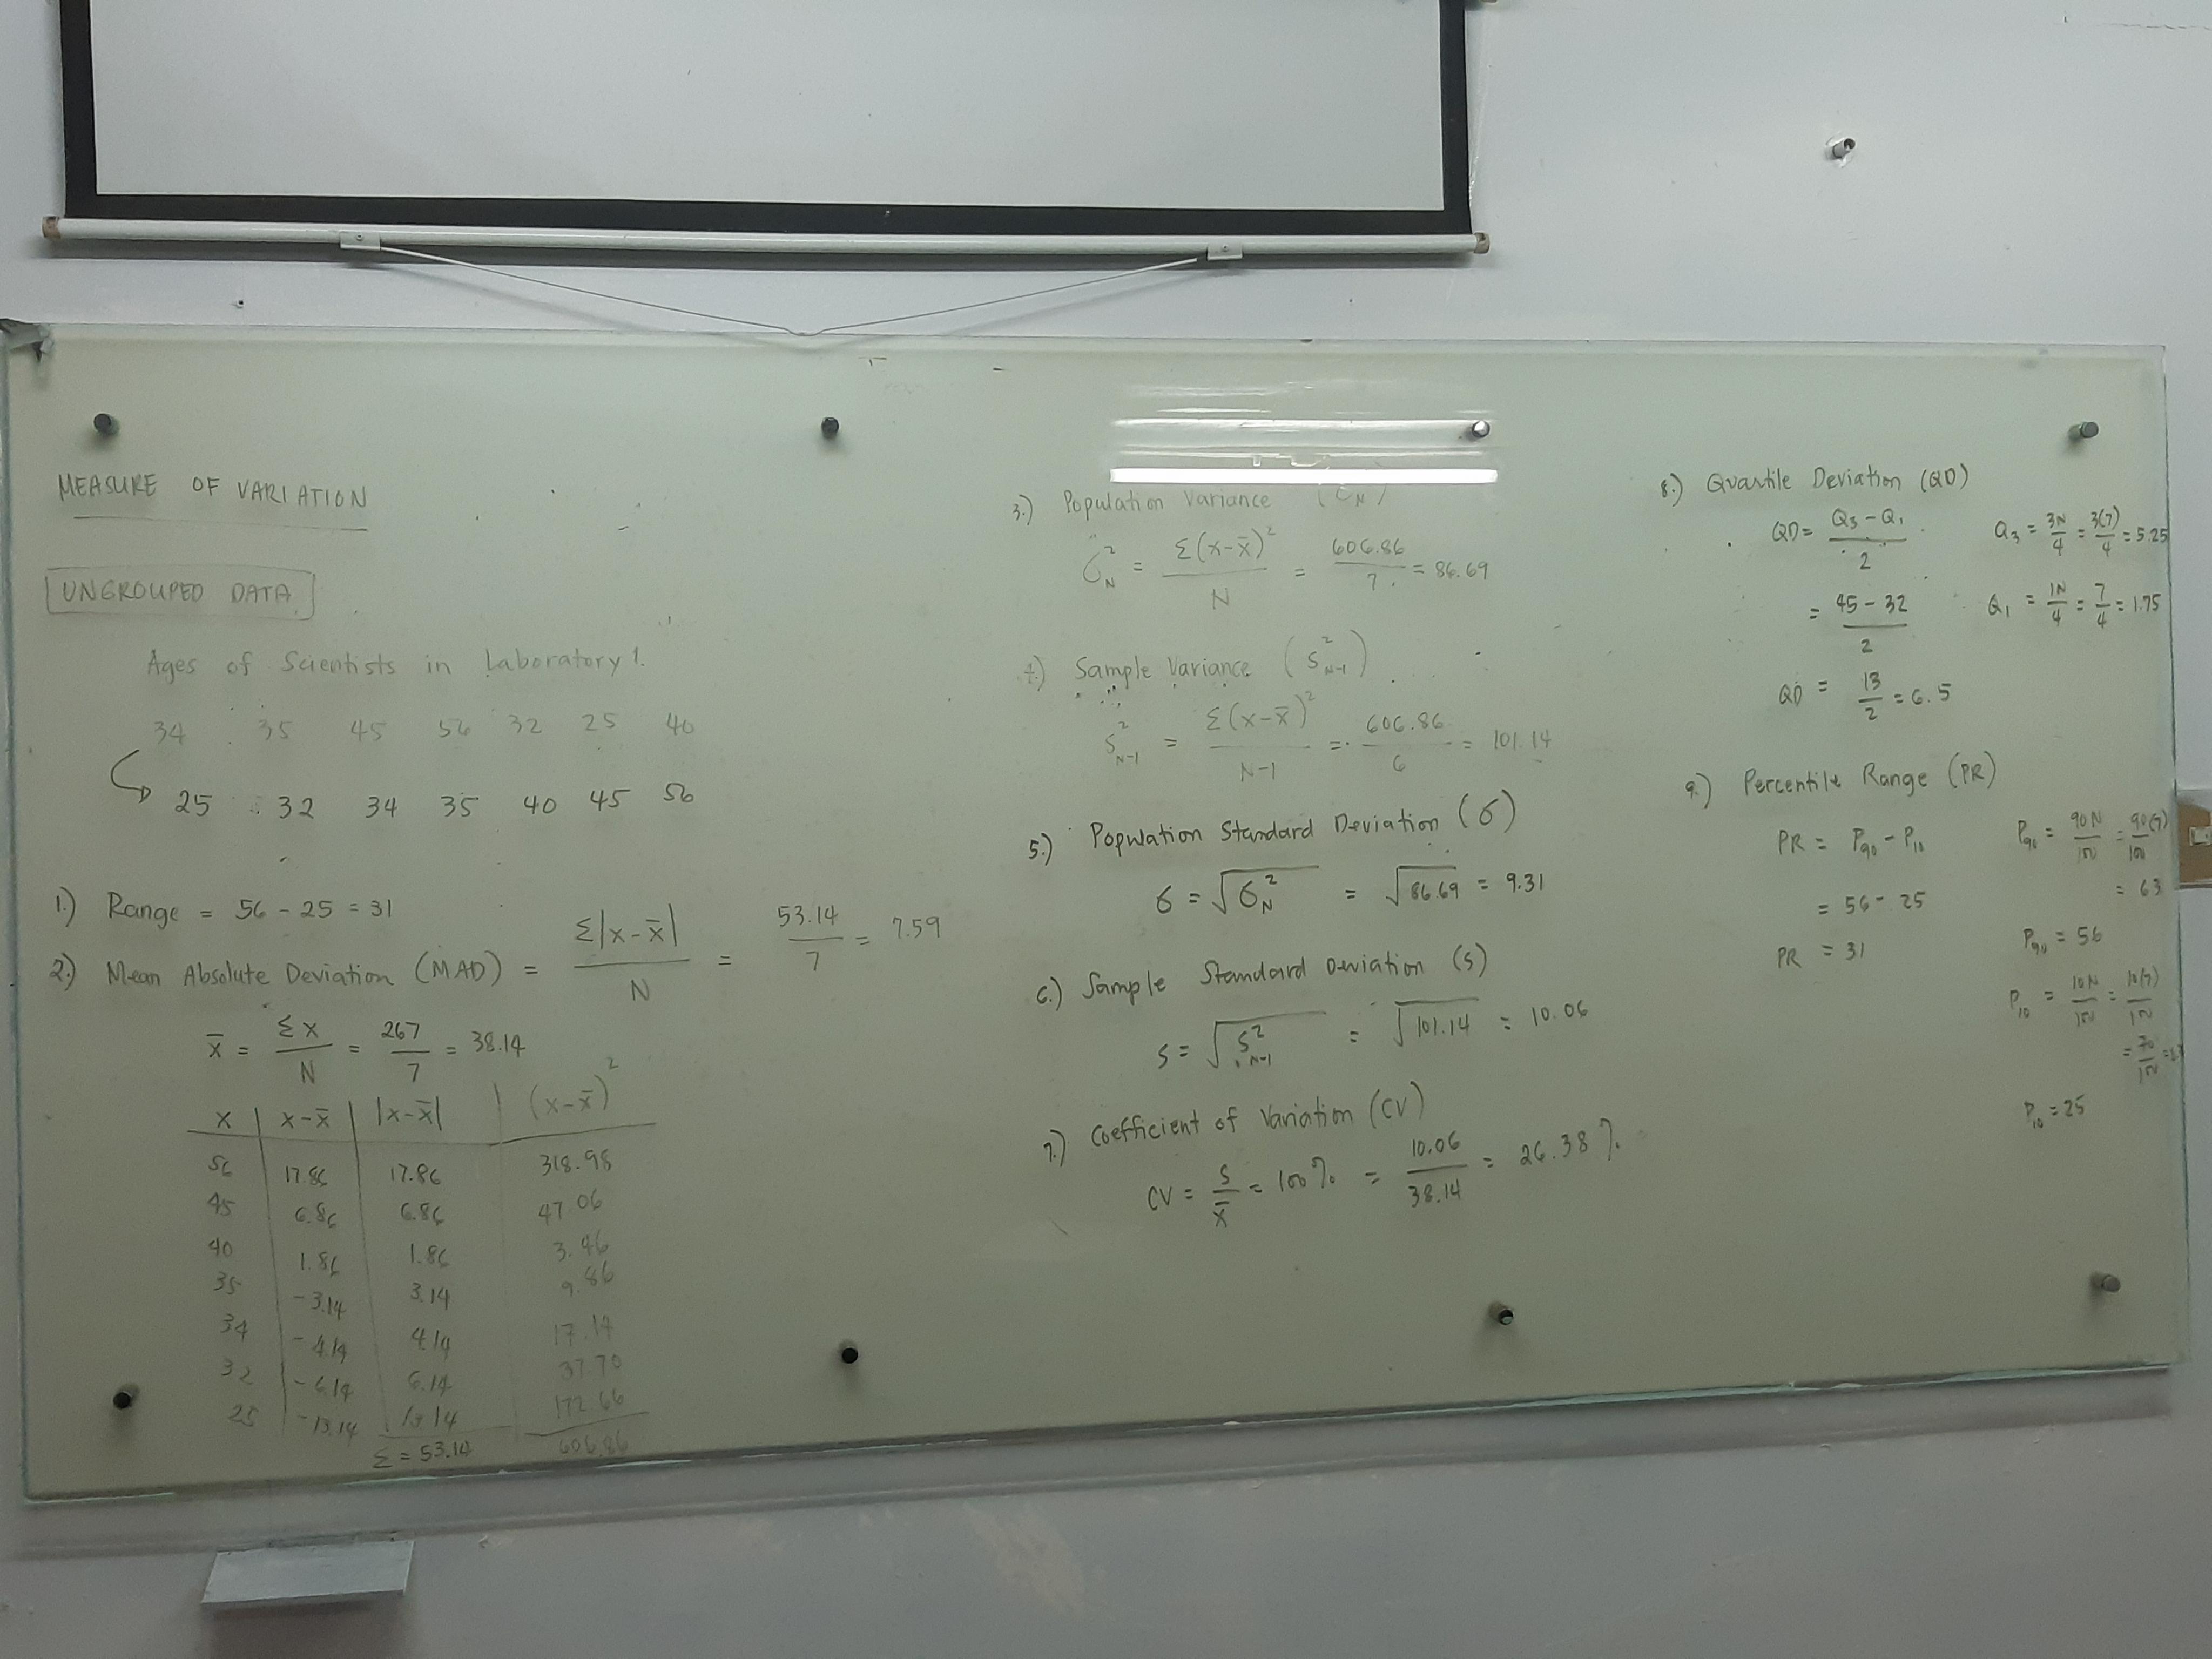 MEASURE OF VARIATION
UNGROUPED DATA
Ages of Scientists in Laboratory 1.
34 35 45 56 32 25 40
25 32 34 35 40 45 56
1.) Range = 56 - 25 = 31
2.) Mean Absolute Deviation (MAD) = Σ|x-x̄| / N = 53.14 / 7 = 7.59
x̄ = Σx / N = 267 / 7 = 38.14
x | x-x̄ | |x-x̄| | (x-x̄)²
56 17.86 17.86 318.98
45 6.86 6.86 47.06
40 1.86 1.86 3.46
35 -3.14 3.14 9.86
34 -4.14 4.14 17.14
32 -6.14 6.14 37.70
25 -13.14 13.14 172.66
Σ = 53.14 606.86
3.) Population Variance
σ²N = Σ(x-x̄)² / N = 606.86 / 7 = 86.69
4.) Sample Variance (S²N-1)
S²N-1 = Σ(x-x̄)² / N-1 = 606.86 / 6 = 101.14
5.) Population Standard Deviation (σ)
σ = √σ²N = √86.69 = 9.31
6.) Sample Standard Deviation (S)
S = √S²N-1 = √101.14 = 10.06
7.) Coefficient of Variation (CV)
CV = S / x̄ = 100% = 10.06 / 38.14 = 26.38%
8.) Quartile Deviation (QD)
QD = Q3 - Q1 / 2
= 45 - 32 / 2
QD = 13 / 2 = 6.5
Q3 = 3N / 4 = 3(7) / 4 = 5.25
Q1 = 1N / 4 = 7 / 4 = 1.75
9.) Percentile Range (PR)
PR = P90 - P10
= 56 - 25
PR = 31
P90 = 90N / 100 = 90(7) / 100
= 63
P90 = 56
P10 = 10N / 100 = 10(7) / 100
= 70 / 100 =
P10 = 25